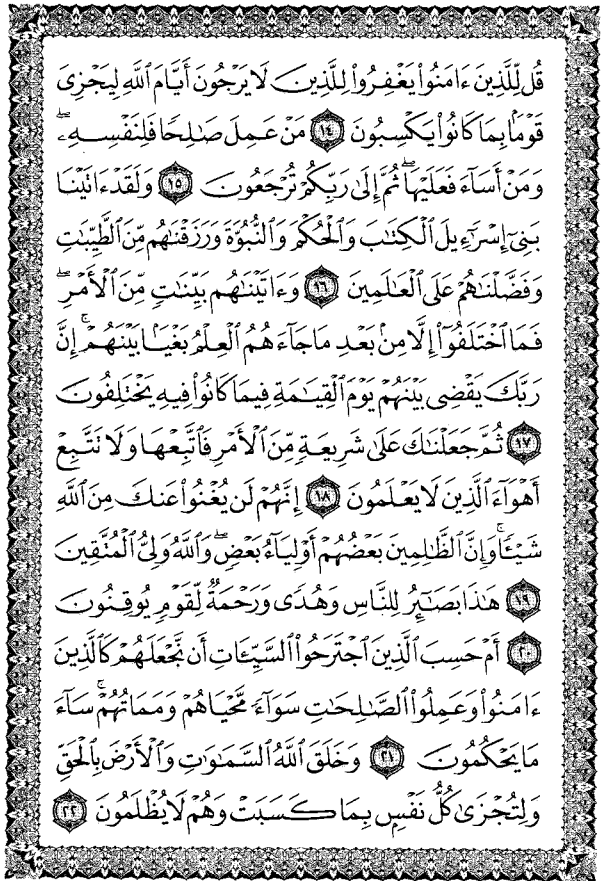 قُل لِّلَّذِينَ ءَامَنُوا۟ يَغْفِرُوا۟ لِلَّذِينَ لَا يَرْجُونَ أَيَّامَ ٱللَّهِ لِيَجْزِىَ
قَوْمًۢا بِمَا كَانُوا۟ يَكْسِبُونَ ١٤ مَنْ عَمِلَ صَٰلِحًا فَلِنَفْسِهِۦ ۖ
وَمَنْ أَسَآءَ فَعَلَيْهَا ۖ ثُمَّ إِلَىٰ رَبِّكُمْ تُرْجَعُونَ ١٥ وَلَقَدْ ءَاتَيْنَا
بَنِىٓ إِسْرَٰٓءِيلَ ٱلْكِتَٰبَ وَٱلْحُكْمَ وَٱلنُّبُوَّةَ وَرَزَقْنَٰهُم مِّنَ ٱلطَّيِّبَٰتِ
وَفَضَّلْنَٰهُمْ عَلَى ٱلْعَٰلَمِينَ ١٦ وَءَاتَيْنَٰهُم بَيِّنَٰتٍ مِّنَ ٱلْأَمْرِ ۖ
فَمَا ٱخْتَلَفُوٓا۟ إِلَّا مِنۢ بَعْدِ مَا جَآءَهُمُ ٱلْعِلْمُ بَغْيًۢا بَيْنَهُمْ ۚ إِنَّ
رَبَّكَ يَقْضِى بَيْنَهُمْ يَوْمَ ٱلْقِيَٰمَةِ فِيمَا كَانُوا۟ فِيهِ يَخْتَلِفُونَ
١٧ ثُمَّ جَعَلْنَٰكَ عَلَىٰ شَرِيعَةٍ مِّنَ ٱلْأَمْرِ فَٱتَّبِعْهَا وَلَا تَتَّبِعْ
أَهْوَآءَ ٱلَّذِينَ لَا يَعْلَمُونَ ١٨ إِنَّهُمْ لَن يُغْنُوا۟ عَنكَ مِنَ ٱللَّهِ
شَيْـًٔا ۚ وَإِنَّ ٱلظَّٰلِمِينَ بَعْضُهُمْ أَوْلِيَآءُ بَعْضٍ ۖ وَٱللَّهُ وَلِىُّ ٱلْمُتَّقِينَ
١٩ هَٰذَا بَصَٰٓئِرُ لِلنَّاسِ وَهُدًى وَرَحْمَةٌ لِّقَوْمٍ يُوقِنُونَ
٢٠ أَمْ حَسِبَ ٱلَّذِينَ ٱجْتَرَحُوا۟ ٱلسَّيِّـَٔاتِ أَن نَّجْعَلَهُمْ كَٱلَّذِينَ
ءَامَنُوا۟ وَعَمِلُوا۟ ٱلصَّٰلِحَٰتِ سَوَآءً مَّحْيَاهُمْ وَمَمَاتُهُمْ ۚ سَآءَ
مَا يَحْكُمُونَ ٢١ وَخَلَقَ ٱللَّهُ ٱلسَّمَٰوَٰتِ وَٱلْأَرْضَ بِٱلْحَقِّ
وَلِتُجْزَىٰ كُلُّ نَفْسٍۭ بِمَا كَسَبَتْ وَهُمْ لَا يُظْلَمُونَ ٢٢